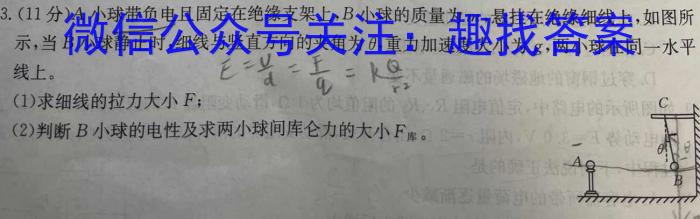 3.(11分)A小球带负电且固定在绝缘支架上,B小球的质量为 悬挂在绝缘细线上,如图所
微信公众号关注：趣找答案
示,当B小球静止时,细线与竖直方向的夹角为θ,重力加速度大小为g,两小球在同一水平
线上。
E = U/d = F/q = k Q/r²
(1)求细线的拉力大小F;
(2)判断B小球的电性及求两小球间库仑力的大小F库。
C
θ
A
B